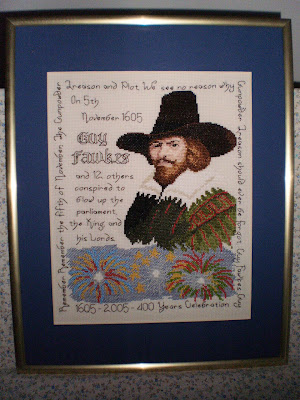 Remember Remember the fifth of November The Gunpowder
Treason and Plot We see no reason Why
Gunpowder Treason should ever be forgot Guy Fawkes Guy
On 5th
November 1605
Guy
Fawkes
and 12 others
conspired to
blow up the
parliament,
the King and
his Lords.
1605 - 2005 - 400 Years Celebration